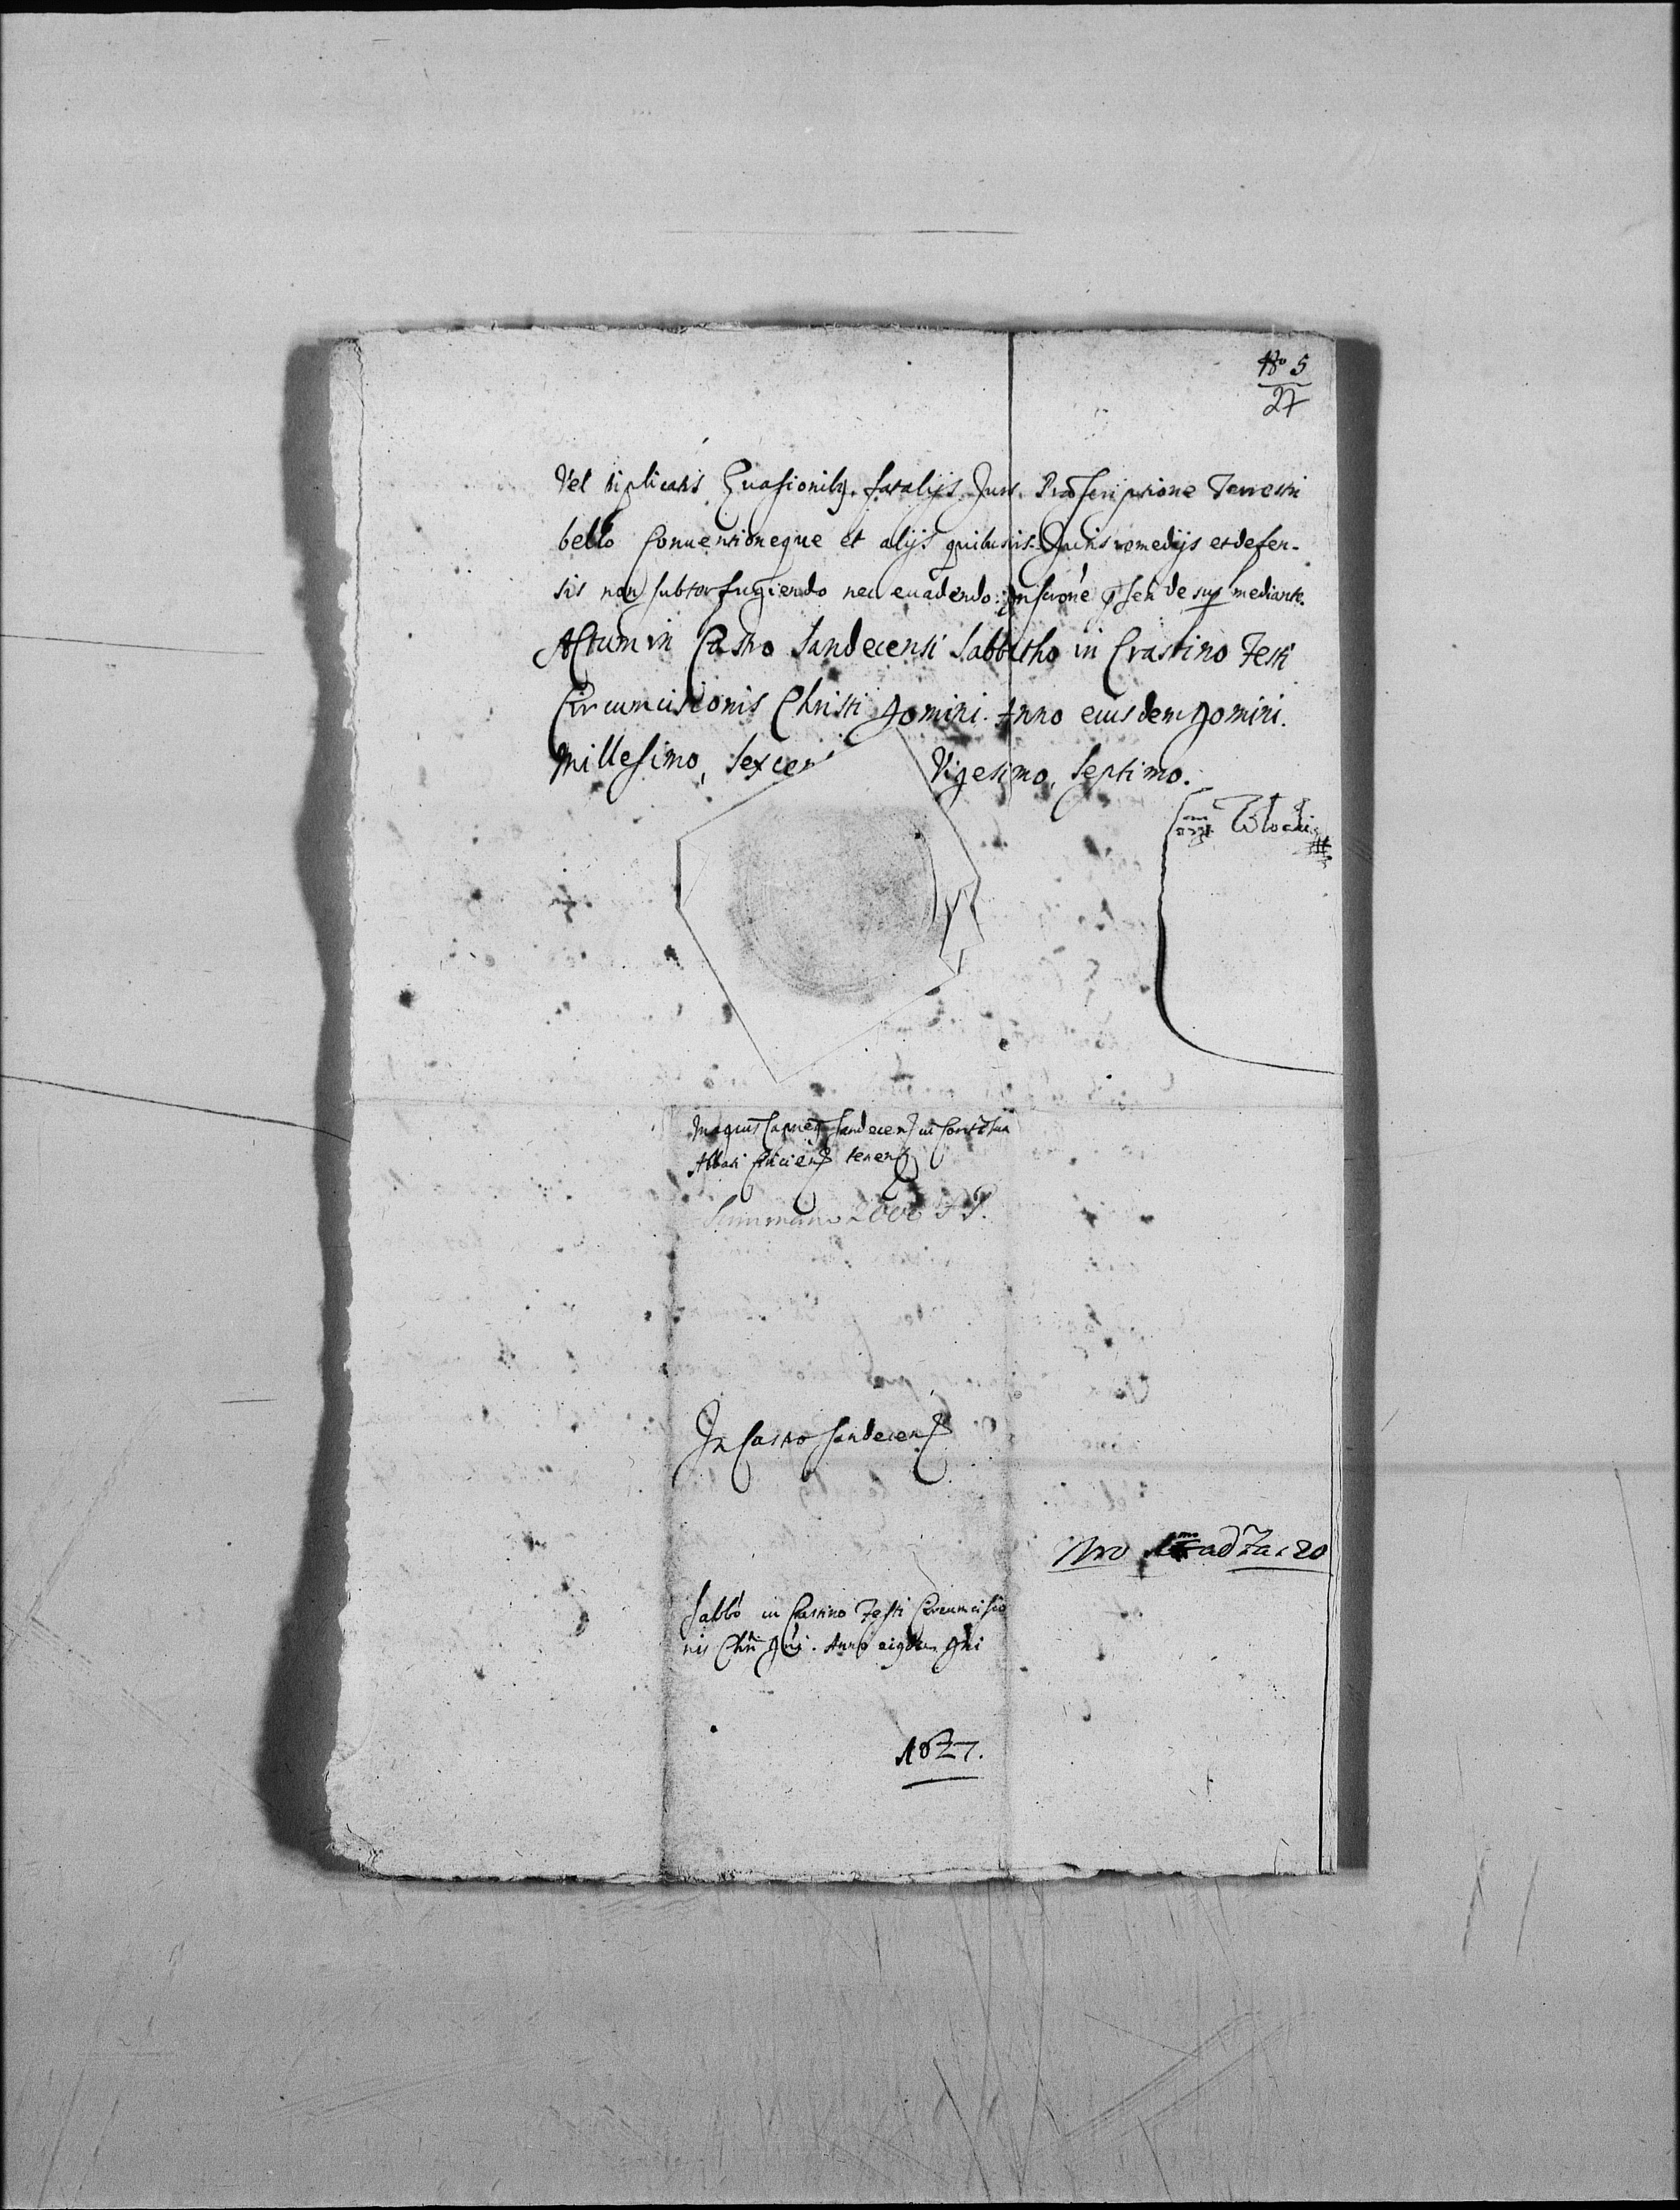 No 5
27
Vel diplicatis Euasionibq. fatalijs Juris Proscriptione Terrestri
bello Conuentioneque et alijs quibusuis Juris remedijs et defen-
sis non subterfugiendo nec euadendo: Inscrone pnsen desup mediante.
Actum in Castro Sandecensi Sabbatho in Crastino Festi
Circumcisionis Christi Domini. Anno eiusdem Domini.
Millesimo, Sexcen Vigesimo, Septimo.
Magcus Capneus Sandecen in
Abbati tenen
Summam 2000
In Castro Sandecen
Nro ad 20
Sabbo in Crastino Festi Circumcisio
nis Chri Dni. Anno eiqdem Dni
1627.